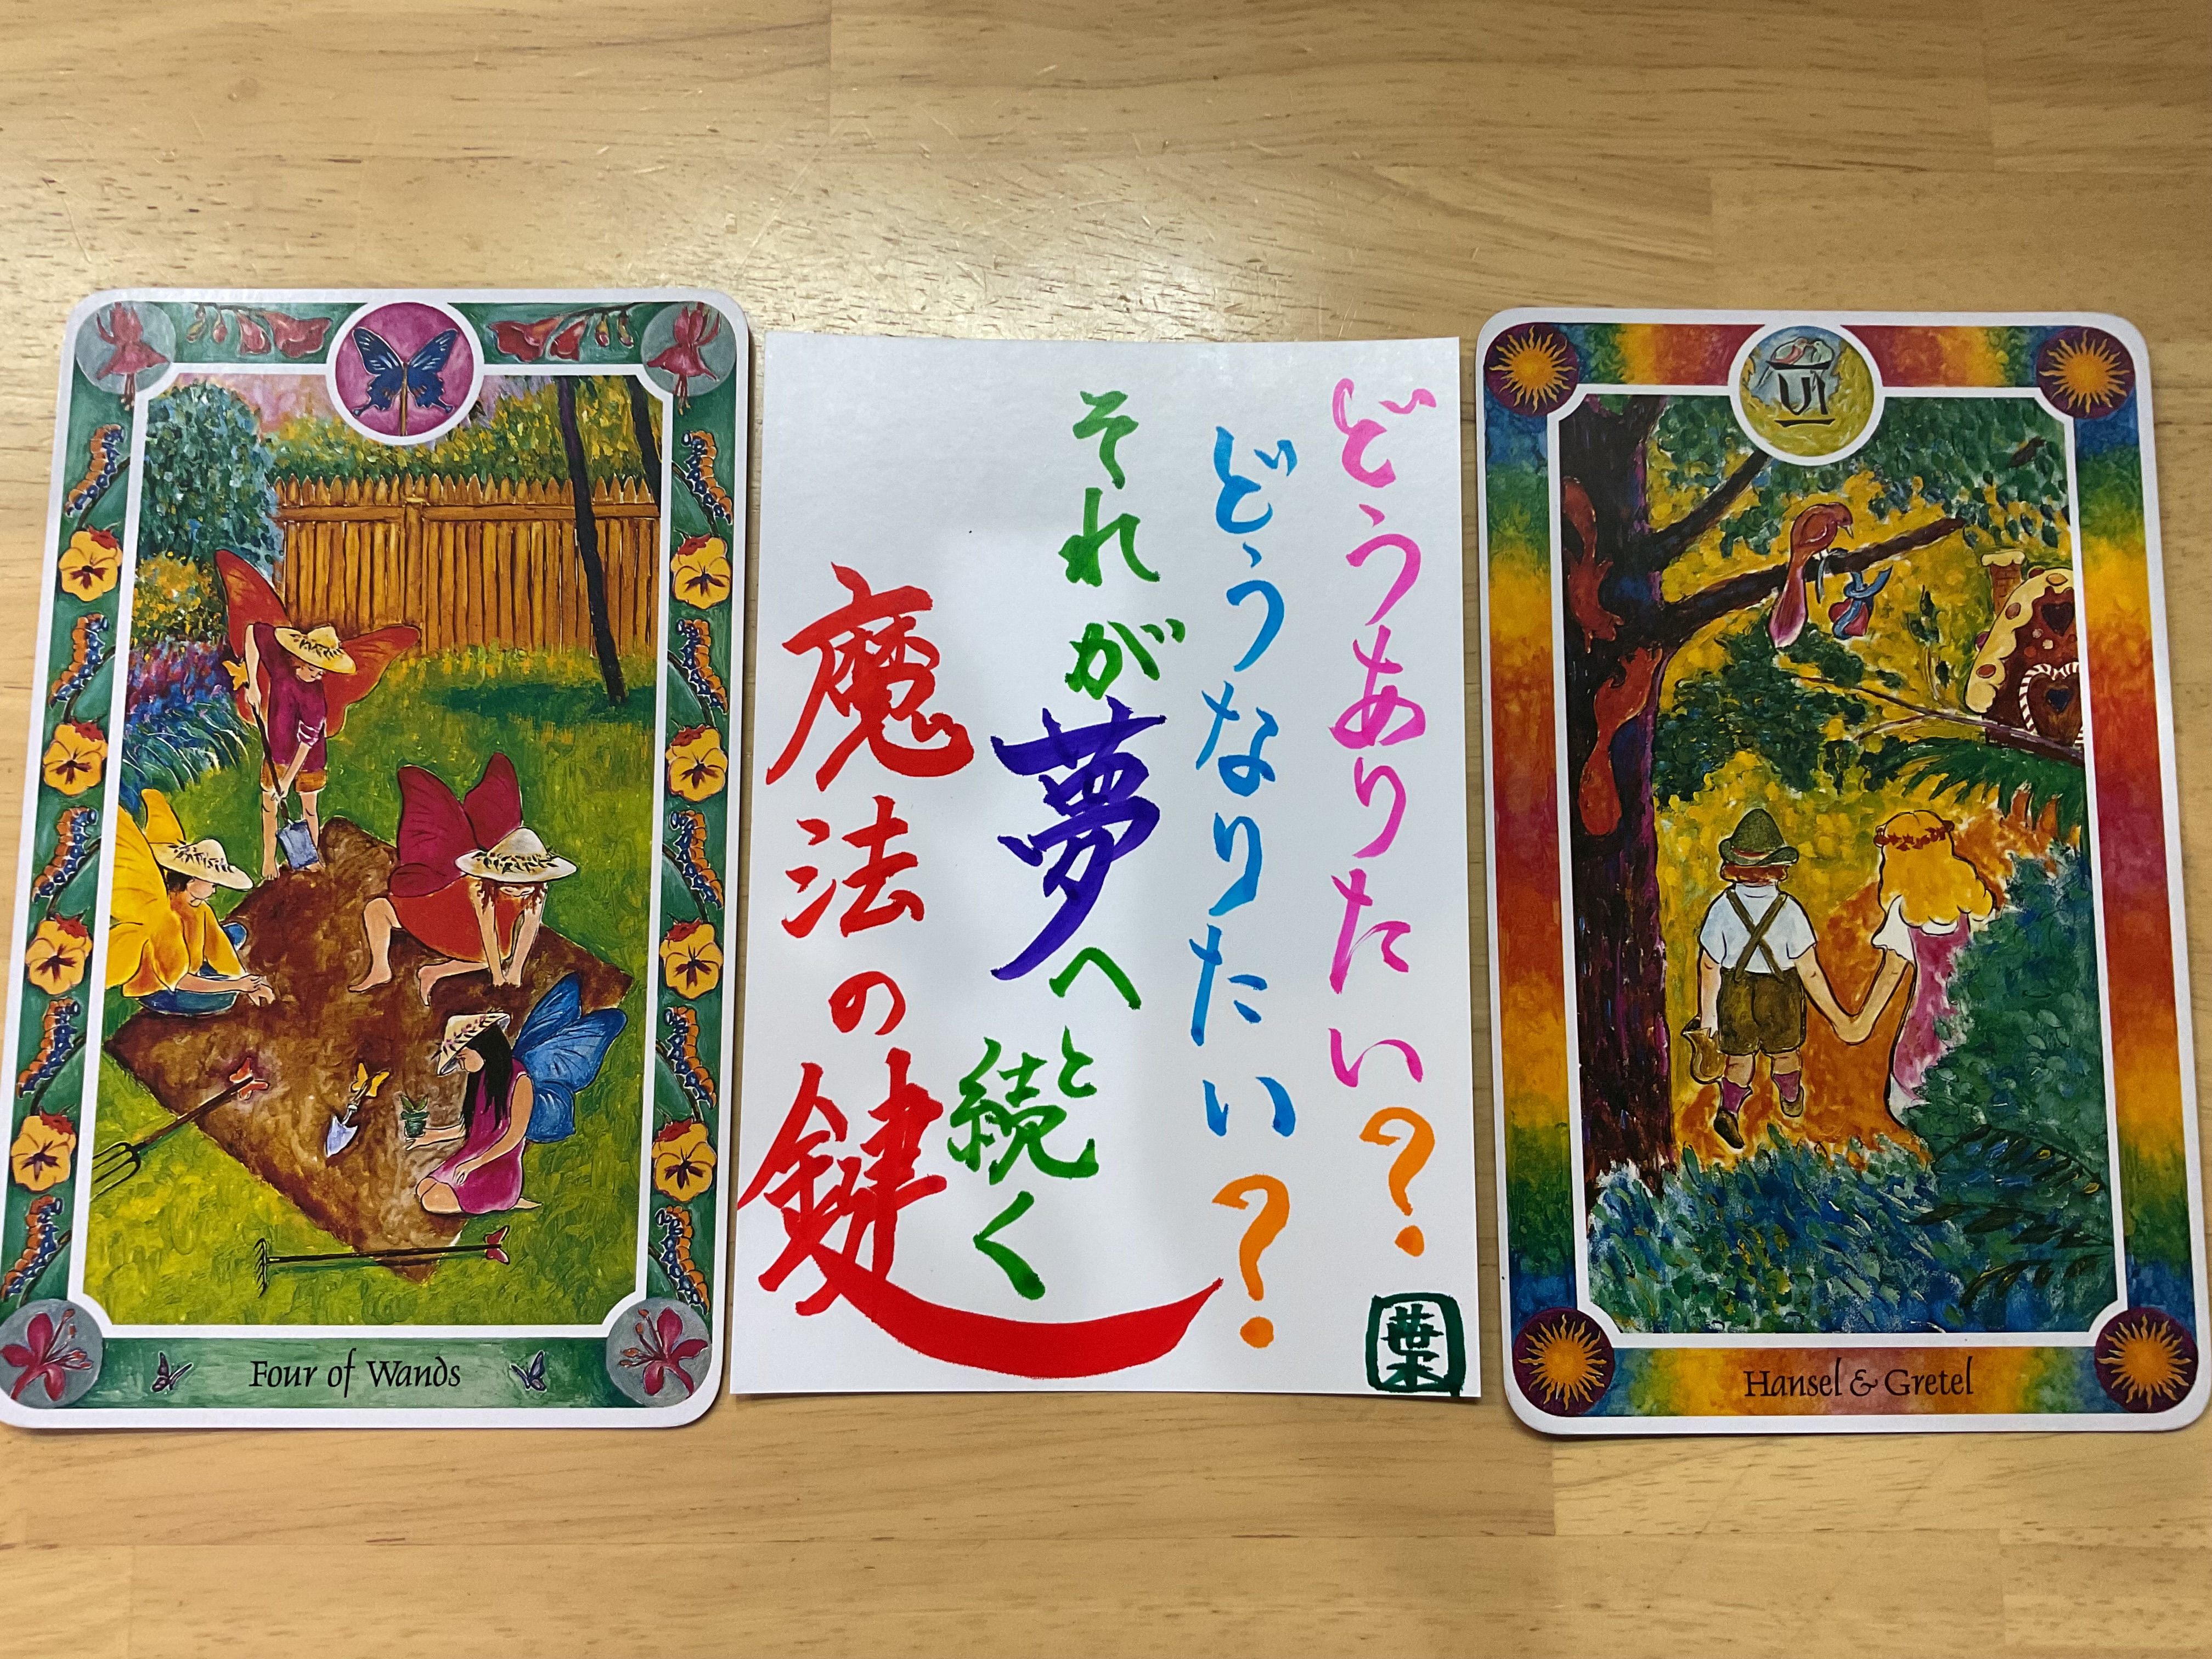 Four of Wands
どうありたい?
どうなりたい?
それが夢へと続く
魔法の鍵
葉
VI
Hansel & Gretel